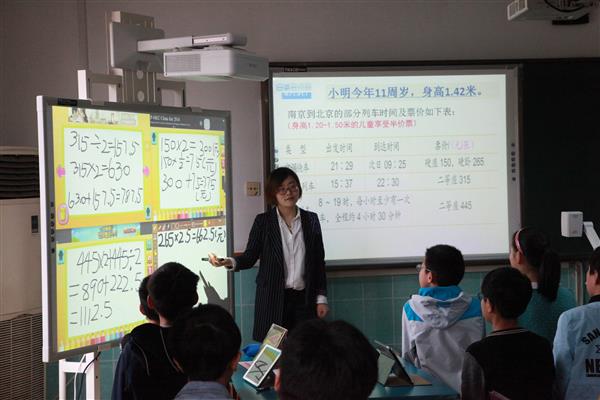 315÷2=157.5
315×2=630
630+157.5=787.5
150×2=300
300+75=375
445×2+445÷2
=890+222.5
=1112.5
265×2.5=662.5(元)
小明今年11周岁，身高1.42米。
南京到北京的部分列车时间及票价如下表：
(身高1.20-1.50米的儿童享受半价票)
类 型 出发时间 到达时间 票价(元/张)
21：29 次日 09：25 硬座 150, 硬卧 265
15：37 22：30 二等座 315
8 ~ 19时，每小时至少有一次 二等座 445
车，全程约 4 小时 30 分钟
SAN
NE